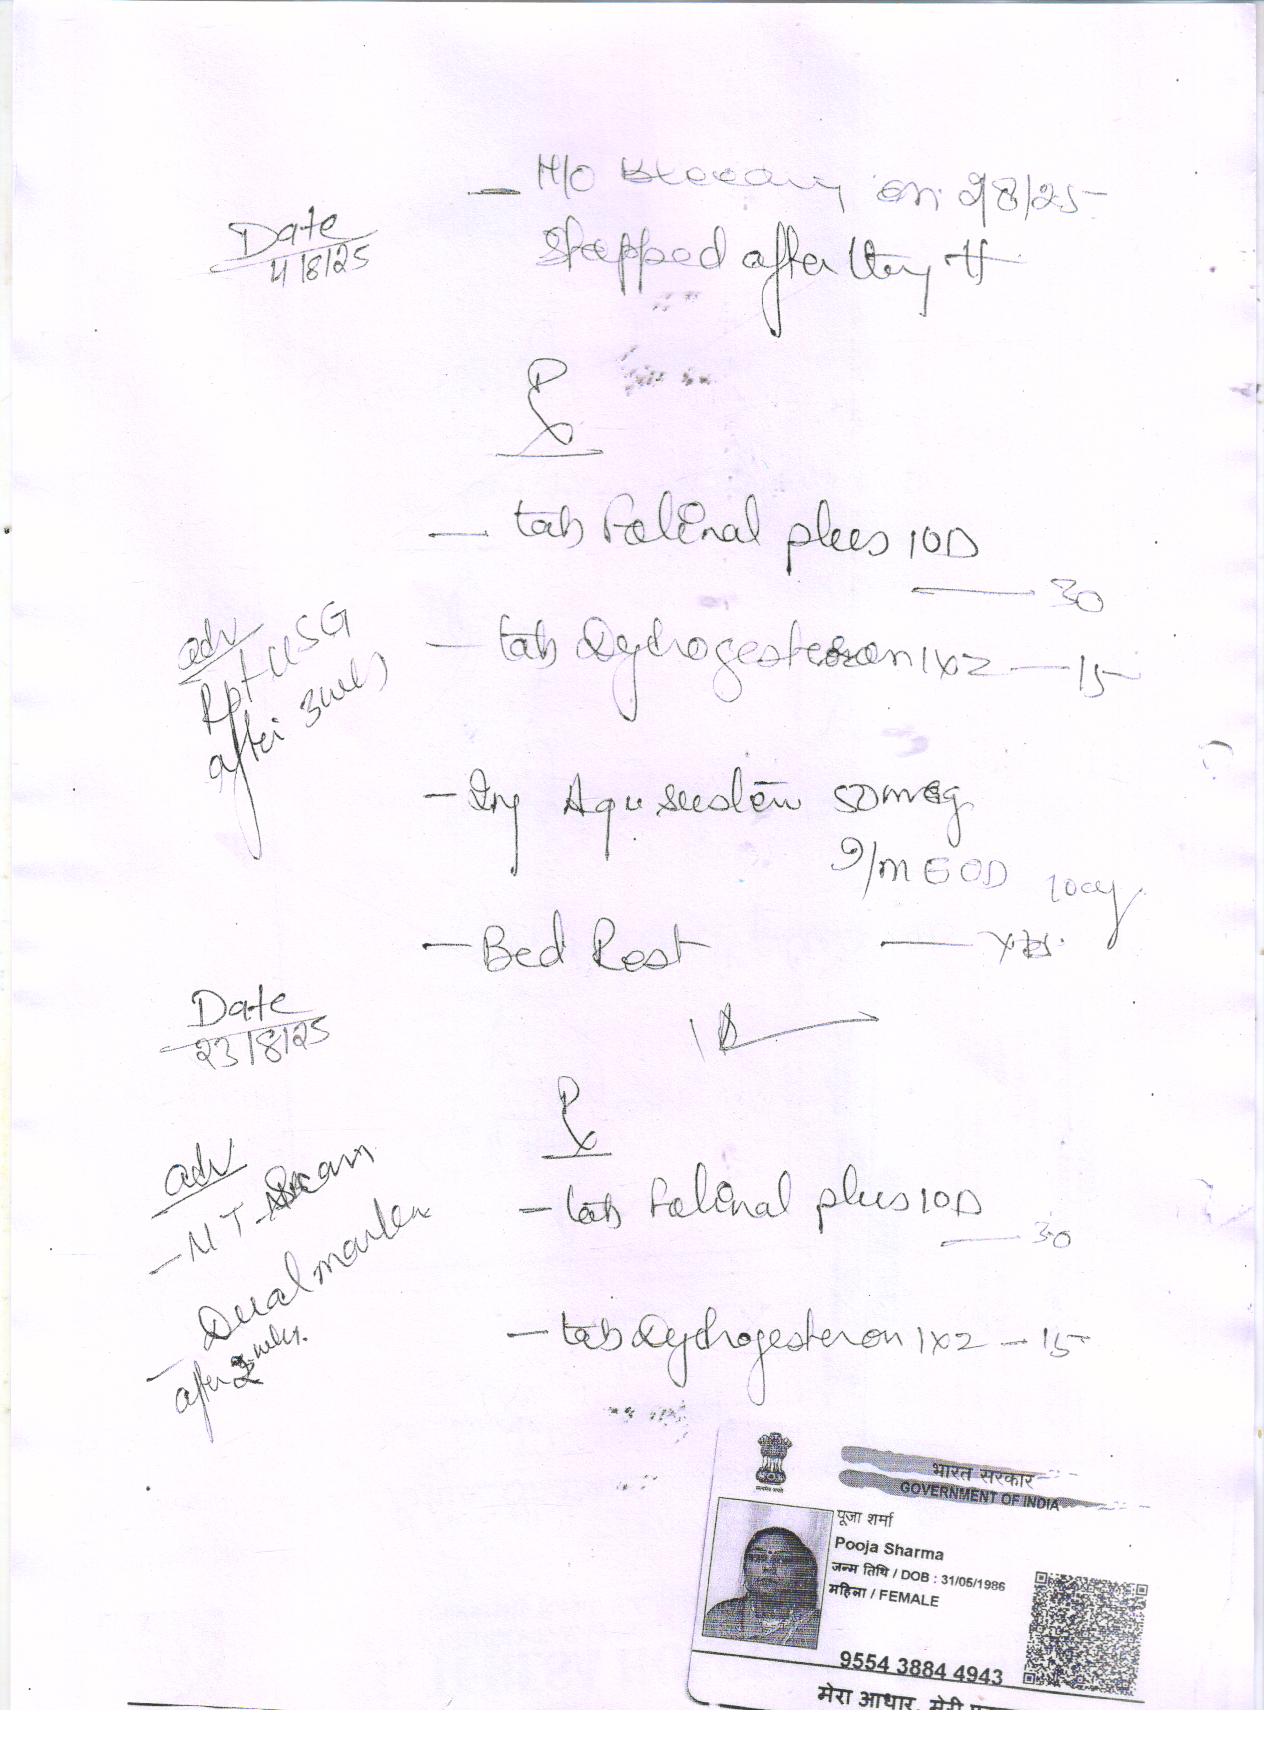 - H/O Bleeding on 2/8/25
Date
4/8/25
Stopped after
Rx
- tab Folinal plus 10D
- 30
- tab Dydrogesteron 1x2 - 15
adv
Rpt USG
after 3 wks
- Inj Aqu 50mg
I/M EOD
- Bed Rest
Date
23/8/25
Rx
adv
- NT Scan
- Dual marker
after 2 wks.
- tab Folinal plus 10D
- 30
- tab Dydrogesteron 1x2 - 15
भारत सरकार
GOVERNMENT OF INDIA
पूजा शर्मा
Pooja Sharma
जन्म तिथि / DOB : 31/05/1986
महिला / FEMALE
9554 3884 4943
मेरा आधार, मेरी